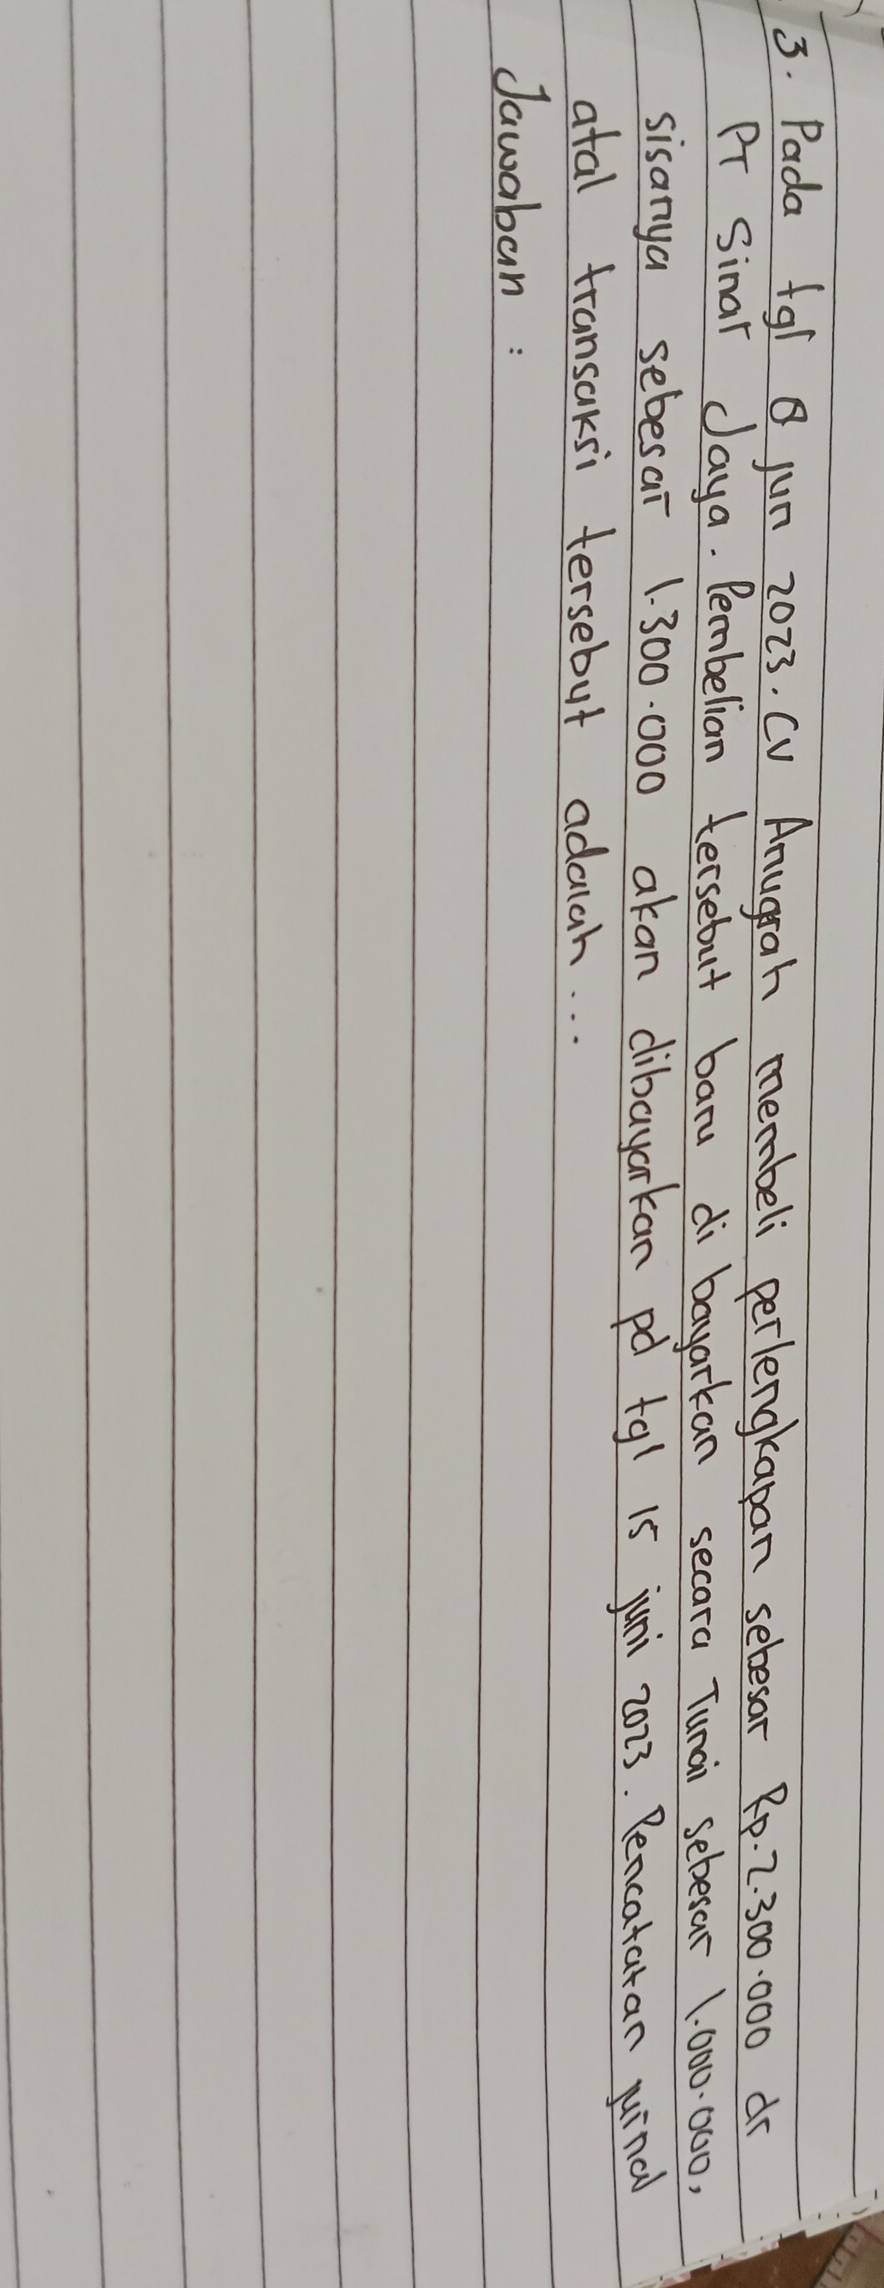 3. Pada tgl 8 jun 2023. CV Anugrah membeli perlengkapan sebesar Rp. 2.300.000 dr
PT Sinar Jaya. Pembelian tersebut baru di bayarkan secara Tunai sebesar 1.000.000,
sisanya sebesar 1.300.000 akan dibayarkan pd tgl 15 juni 2023. Pencatatan jurnal
atal transaksi tersebut adalah...
Jawaban :